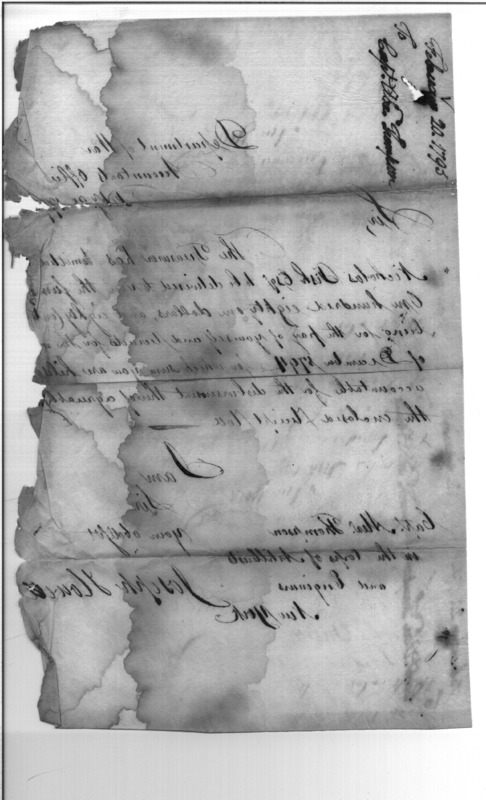 February 20. 1795
To
Capt. Alex. Thompson
Department of War
Accountants Office
Feby 20. 1795
Sir,
The Treasurer has remitted
Nicholas Fish Esqr to be delivered to you the sum of
One hundred eighty one dollars, and eighty
being for the pay of yourself and servants for the
of December 1794 for which sum you are held
accountable for the disbursement thereof agreeably
the enclosed
I am
Sir
your obdt
Capt. Alex. Thompson
in the Corps of Artillerists
and Engineers
New York
Joseph Howell